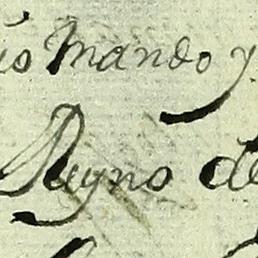 is mando y
Reyno de